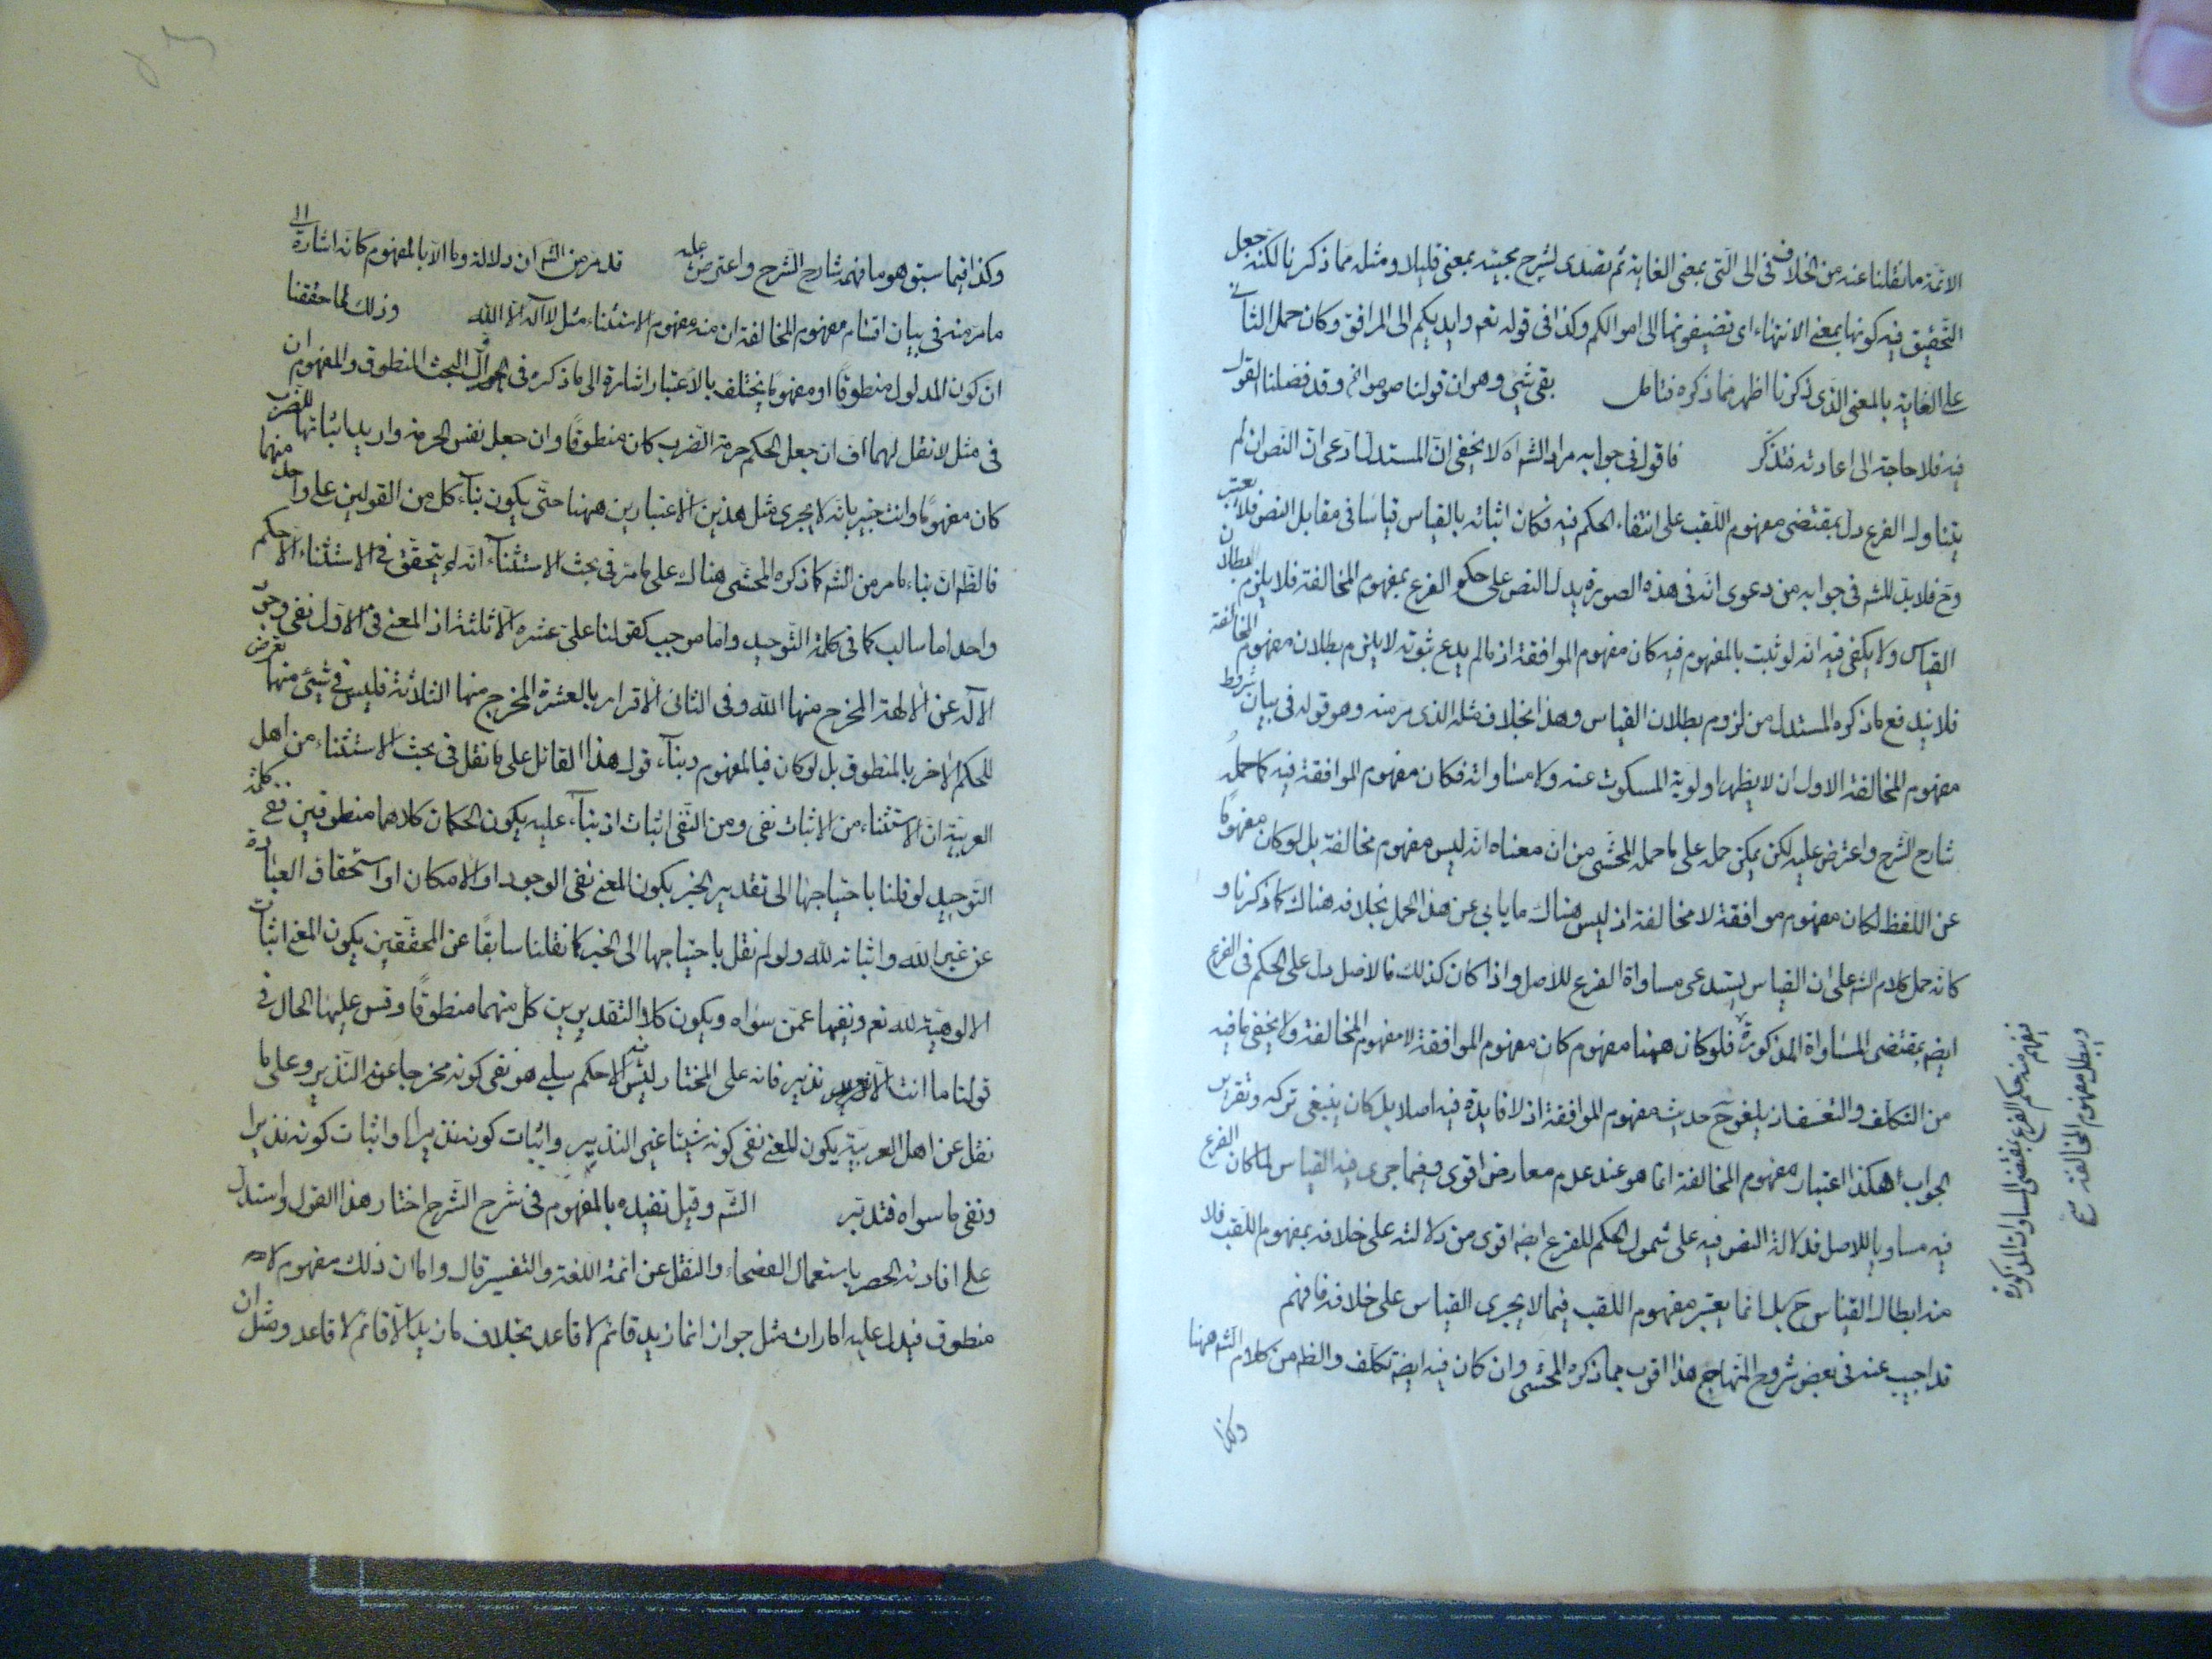 الائمة ما نقلنا عنه من الخلاف فى الى التى بمعنى الغاية ثم تصدى لشرح مجيئه بمعنى قليلا ومثله مما ذكرنا لكنه جعل
التحقيق فيه كونها بمعنى الانتهاء اى تضيفونها الى اموالكم وكذا فى قوله تعم وايديكم الى المرافق وكان حمل الثانى
على الغاية بالمعنى الذى ذكرنا اظهر مما ذكره فتامل بقى شئ وهو ان قولنا صوموا وقد فصلنا القول
فيه فلا حاجة الى اعادته فتذكر فاقول فى جوابه مراد الشم اه لا يخفى ان المستدل ادعى ان النص ان لم
يتناول الفرع دل بمقتضى مفهوم اللقب على انتفاء الحكم فيه فكان اثباته بالقياس قياسا فى مقابل النص فلا يعتبر
وح فلابد للشم فى جوابه من دعوى انه فى هذه الصورة يدل النص على حكم الفرع بمفهوم المخالفة فلا يلزم بطلان
القياس ولا يكفى فيه انه لو ثبت بالمفهوم فيه كان مفهوم الموافقة اذ ما لم يدع ثبوته لا يلزم بطلان مفهوم المخالفة
فلا يندفع ما ذكره المستدل من لزوم بطلان القياس وهذا بخلاف مثله الذى مر منه وهو قوله فى بيان شروط
مفهوم المخالفة الاول ان لا يظهر اولوية المسكوت عنه ولا مساواته فكان مفهوم الموافقة فيه كما حمله
شارح الشرح واعترض عليه لكن يمكن حمله على ما حمله المحشى من ان معناه انه ليس مفهوم مخالفة بل لو كان مفهوما
عن اللفظ لكان مفهوم موافقة لا مخالفة اذ ليس هناك ما يابى عن هذا الحمل بخلافه هناك كما ذكرنا و
كانه حمل كلام الشم على ان القياس يستدعى مساواة الفرع للاصل واذا كان كذلك فالاصل دل على الحكم فى الفرع
ايضم بمقتضى المساواة المذكورة فلو كان ههنا مفهوم كان مفهوم الموافقة لا مفهوم المخالفة ولا يخفى ما فيه
من التكلف والتعسف اذ يلغوح حديث مفهوم الموافقة اذ لا فايدة فيه اصلا بل كان ينبغى تركه وتقرير
الجواب هكذا اعتبار مفهوم المخالفة انما هو عند عدم معارض اقوى وفيما جرى فيه القياس لما كان الفرع
فيه مساويا للاصل فدلالة النص فيه على شمول الحكم للفرع ايضم اقوى من دلالته على خلافه بمفهوم اللقب فلا
منه ابطال القياس ح بل انما يعتبر مفهوم اللقب فيما لا يجرى القياس على خلافه فافهم
قد اجيب عنه فى بعض شروح المنهاج هذا اقرب مما ذكره المحشى وان كان فيه ايضم تكلف والظم من كلام الشم ههنا
وكذا
يفهم منه حكم الفرع بمقتضى المساواة المذكورة
ويبطل مفهوم المخالفة صح
وكذا فيما سبق هو ما فهمه شارح الشرح واعترض عليه قد مر من الشم ان دلالة وما الا بالمفهوم كانه اشارة الى
ما مر منه فى بيان اقسام مفهوم المخالفة ان منه مفهوم الاستثناء مثل لا اله الا الله وذلك لما حققنا
ان كون المدلول منطوقا او مفهوما يختلف بالاعتبار اشارة الى ما ذكره فى البحث المنطوق والمفهوم ان
فى مثل لا تقل لهما اف ان جعل الحكم حرمة الضرب كان منطوقا وان جعل نفس الحرمة واريد باثباتها للضرب
كان مفهوما وانت خبير بانه لا يجرى مثل هذين الاعتبارين ههنا حتى يكون بناء كل من القولين على واحد منهما
فالظم ان بناء ما مر من الشم كما ذكره المحشى هناك على ما مر فى بحث الاستثناء انه لم يتحقق فى الاستثناء الا حكم
واحد اما سالب كما فى كلمة التوحيد واما موجب كقولنا على عشرة الا ثلثة اذ المعنى فى الاول نفى وجود
الاله عن الالهة المخرج منها الله وفى الثانى الاقرار بالعشرة المخرج منها الثلاثة فليس فى شئ منها تعرض
للحكم الاخر بالمنطوق بل لو كان فبالمفهوم وبناء قول هذا القائل على ما نقل فى بحث الاستثناء من اهل
العربية ان الاستثناء من الاثبات نفى ومن النفى اثبات اذ بناء عليه يكون الحكمان كلاهما منطوقين ففى كلمة
التوحيد لو قلنا باحتياجها الى تقدير الخبر يكون المعنى نفى الوجود او الامكان او استحقاق العبادة
عن غير الله واثباته لله ولو لم نقل باحتياجها الى الخبر كما نقلنا سابقا عن المحققين يكون المعنى اثبات
الالوهية لله تعم ونفيها عمن سواه ويكون كلا التقديرين كل منهما منطوقا وقس عليها الحال فى
قولنا ما انت الا نذير فانه على المختار ليس فيه الا حكم سلبى هو نفى كونه مخرجا عنه النذير وعلى ما
نقل عن اهل العربية يكون المعنى نفى كونه شيئا غير النذير واثبات كونه نذيرا واثبات كونه نذيرا
ونفى ما سواه فتدبر الشم وقيل تفيده بالمفهوم فى شرح الشرح اختار هذا القول واستدل
على افادته الحصر باستعمال الفصحاء والنقل عن ائمة اللغة والتفسير قال واما ان ذلك مفهوم لا
منطوق فيدل عليه امارات مثل جواز انما زيد قائم لا قاعد بخلاف ما زيد الا قائم لا قاعد ومثل ان